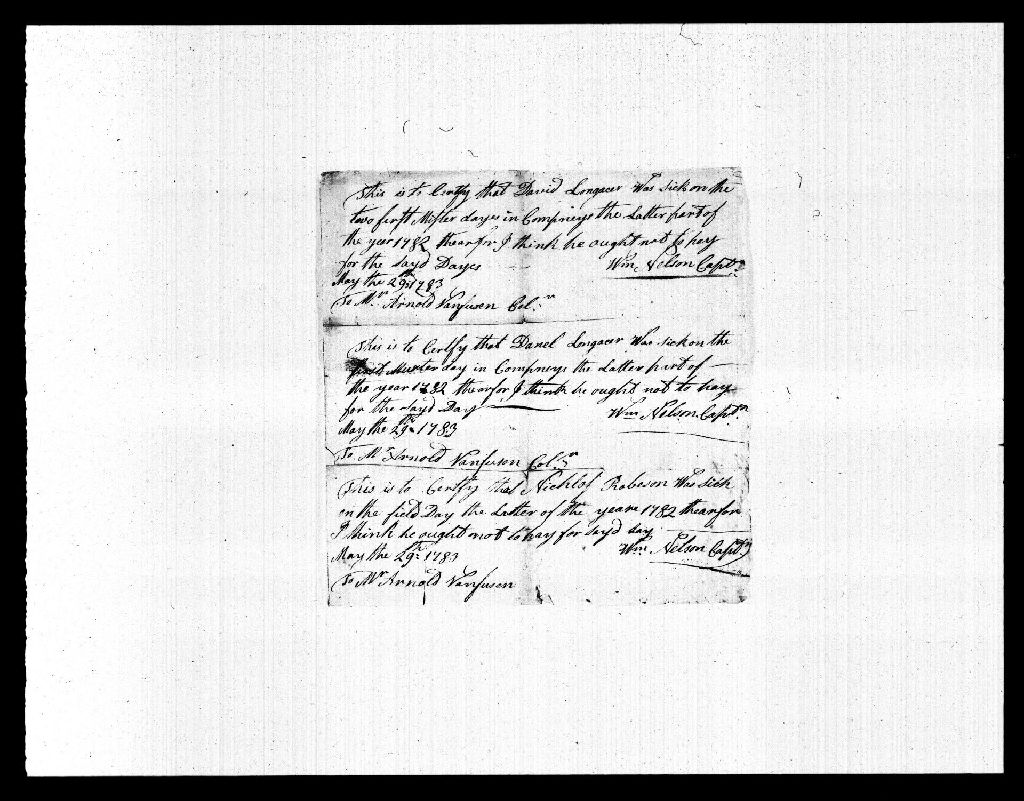 This is to Certfy that David Longacer Was Sick on the
two first Mister dayes in Compneys the Latter part of
the year 1782 thearfor I think he ought not to pay
for the sayd Dayes Wm Nelson Capt.n
May the 29th 1783
To Mr Arnold Vanfuson Col.n
This is to Certfy that Danel Longacer Was sick on the
first Muster day in Compneys the Latter part of
the year 1782 thearfor I think he ought not to pay
for the sayd Day Wm Nelson Capt.n
May the 29th 1783
To Mr Arnold Vanfuson Col.n
This is to Certfy that Nichlos Robeson Was Sick
on the field Day the Latter of the yeare 1782 thearfor
I think he ought not to pay for sayd day
May the 29th 1783 Wm Nelson Capt.n
To Mr Arnold Vanfuson